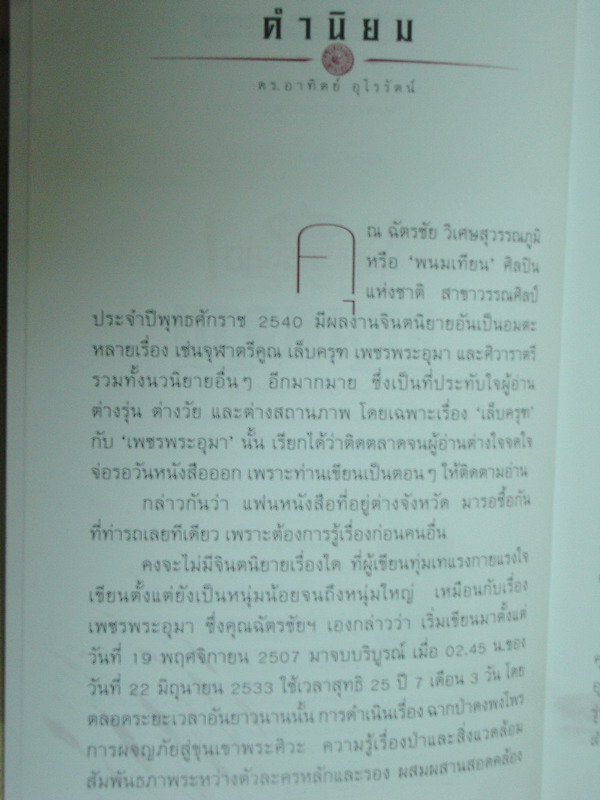 คำนิยม
ดร.อาทิตย์ อุไรรัตน์
คุณ ฉัตรชัย วิเศษสุวรรณภูมิ
หรือ ‘พนมเทียน’ ศิลปิน
แห่งชาติ สาขาวรรณศิลป์
ประจำปีพุทธศักราช 2540 มีผลงานจินตนิยายอันเป็นอมตะ
หลายเรื่อง เช่นจุฬาตรีคูณ เล็บครุฑ เพชรพระอุมา และศิวาราตรี
รวมทั้งนวนิยายอื่นๆ อีกมากมาย ซึ่งเป็นที่ประทับใจผู้อ่าน
ต่างรุ่น ต่างวัย และต่างสถานภาพ โดยเฉพาะเรื่อง ‘เล็บครุฑ’
กับ ‘เพชรพระอุมา’ นั้น เรียกได้ว่าติดตลาดจนผู้อ่านต่างใจจดใจ
จ่อรอวันหนังสือออก เพราะท่านเขียนเป็นตอนๆ ให้ติดตามอ่าน
กล่าวกันว่า แฟนหนังสือที่อยู่ต่างจังหวัด มารอซื้อกัน
ที่ท่ารถเลยทีเดียว เพราะต้องการรู้เรื่องก่อนคนอื่น
คงจะไม่มีจินตนิยายเรื่องใด ที่ผู้เขียนทุ่มเทแรงกายแรงใจ
เขียนตั้งแต่ยังเป็นหนุ่มน้อยจนถึงหนุ่มใหญ่ เหมือนกับเรื่อง
เพชรพระอุมา ซึ่งคุณฉัตรชัยฯ เองกล่าวว่า เริ่มเขียนมาตั้งแต่
วันที่ 19 พฤศจิกายน 2507 มาจบบริบูรณ์ เมื่อ 02.45 น.ของ
วันที่ 22 มิถุนายน 2533 ใช้เวลาสุทธิ 25 ปี 7 เดือน 3 วัน โดย
ตลอดระยะเวลาอันยาวนานนั้น การดำเนินเรื่อง ฉากป่าดงพงไพร
การผจญภัยสู่ขุนเขาพระศิวะ ความรู้เรื่องป่าและสิ่งแวดล้อม
สัมพันธภาพระหว่างตัวละครหลักและรอง ผสมผสานสอดคล้อง